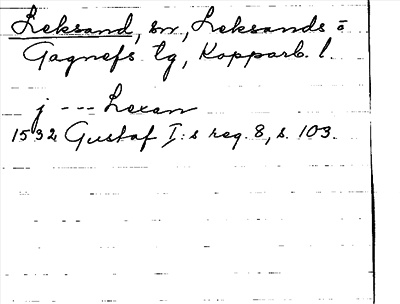 Leksand, sn, Leksands o
Gagnefs tg, Kopparb. l.
j --- Lexan
1532 Gustaf I:s reg. 8, s. 103.